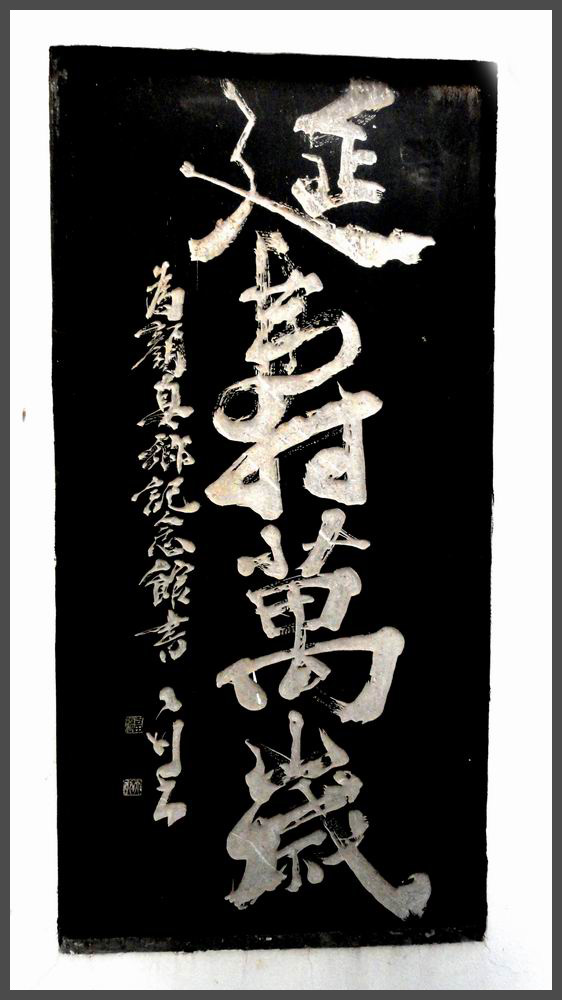 延壽萬歲
為顏真卿記念館書